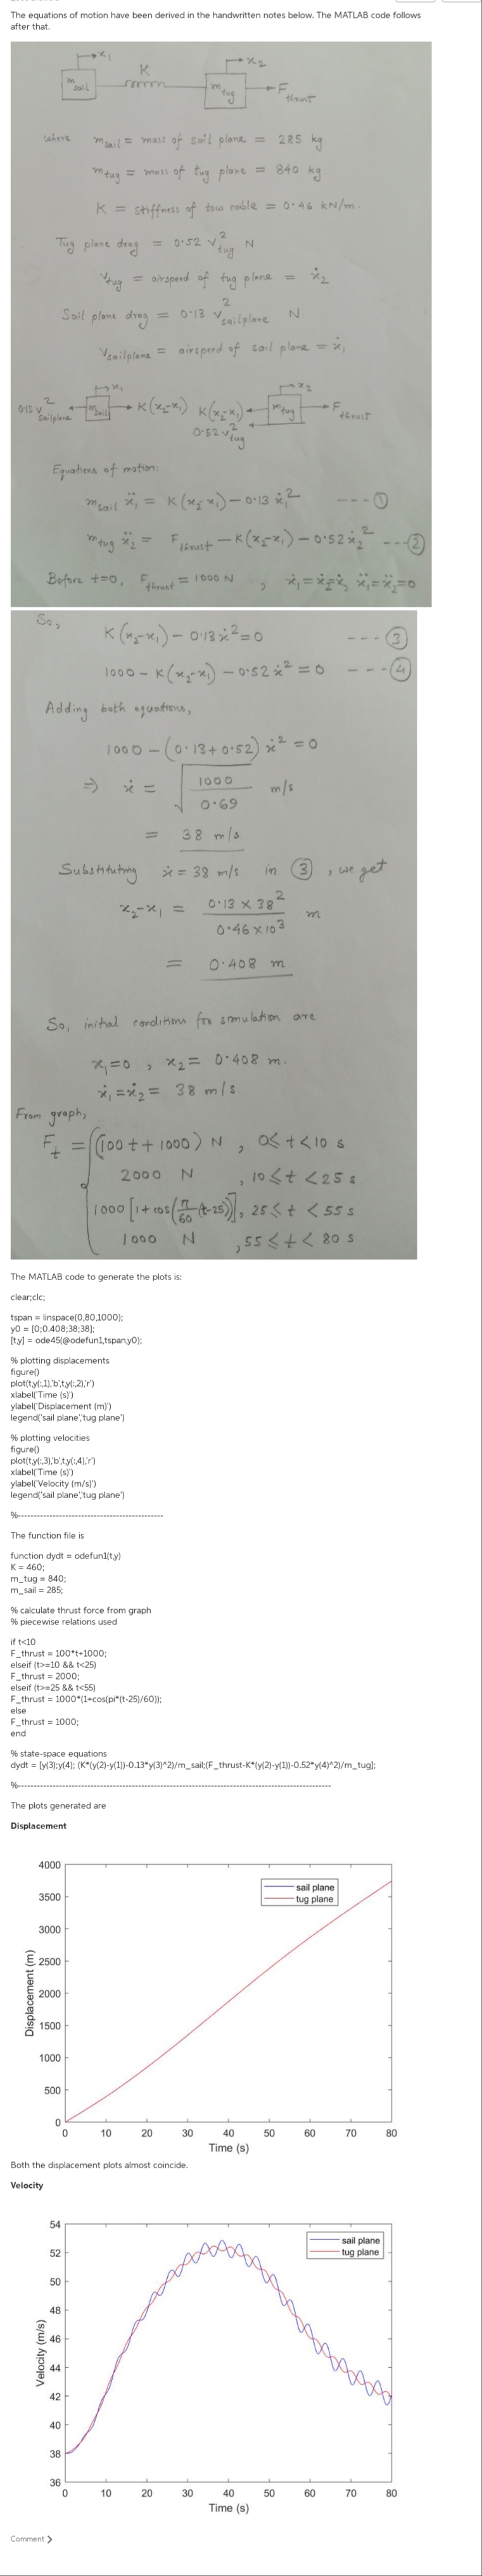 The equations of motion have been derived in the handwritten notes below. The MATLAB code follows
after that.
x₁
K
x₂
m sail
m tug
F thrust
where m_sail = mass of sail plane = 285 kg
m_tug = mass of tug plane = 840 kg
K = stiffness of tow cable = 0.46 kN/m.
Tug plane drag = 0.52 V²_tug N
V_tug = airspeed of tug plane = ẋ₂
Sail plane drag = 0.13 V²_sailplane N
V_sailplane = airspeed of sail plane = ẋ₁
x₁
x₂
0.13 V²_sailplane
m_sail
K(x₂-x₁)
K(x₂-x₁)
m_tug
F_thrust
0.52 V²_tug
Equations of motion:
m_sail ẍ₁ = K(x₂-x₁) - 0.13 ẋ₁² ---①
m_tug ẍ₂ = F_thrust - K(x₂-x₁) - 0.52 ẋ₂² ---②
Before t=0, F_thrust = 1000 N , ẋ₁=ẋ₂=ẋ, ẍ₁=ẍ₂=0
So,
K(x₂-x₁) - 0.13 ẋ² = 0 ---③
1000 - K(x₂-x₁) - 0.52 ẋ² = 0 ---④
Adding both equations,
1000 - (0.13+0.52) ẋ² = 0
⇒ ẋ = √(1000/0.69) m/s
= 38 m/s
Substituting ẋ = 38 m/s in ③ , we get
x₂-x₁ = (0.13 × 38²)/(0.46×10³) m
= 0.408 m
So, initial conditions for simulation are
x₁=0 , x₂= 0.408 m.
ẋ₁ = ẋ₂ = 38 m/s.
From graph,
F_t = (100t + 1000) N , 0≤ t <10 s
2000 N , 10≤ t <25 s
1000 [1+cos(π/60 (t-25))], 25≤ t < 55 s
1000 N , 55 ≤ t < 80 s
The MATLAB code to generate the plots is:
clear;clc;
tspan = linspace(0,80,1000);
y0 = [0;0.408;38;38];
[t,y] = ode45(@odefun1,tspan,y0);
% plotting displacements
figure()
plot(t,y(:,1),'b',t,y(:,2),'r')
xlabel('Time (s)')
ylabel('Displacement (m)')
legend('sail plane','tug plane')
% plotting velocities
figure()
plot(t,y(:,3),'b',t,y(:,4),'r')
xlabel('Time (s)')
ylabel('Velocity (m/s)')
legend('sail plane','tug plane')
%----------------------------------------------
The function file is
function dydt = odefun1(t,y)
K = 460;
m_tug = 840;
m_sail = 285;
% calculate thrust force from graph
% piecewise relations used
if t<10
F_thrust = 100*t+1000;
elseif (t>=10 && t<25)
F_thrust = 2000;
elseif (t>=25 && t<55)
F_thrust = 1000*(1+cos(pi*(t-25)/60));
else
F_thrust = 1000;
end
% state-space equations
dydt = [y(3);y(4); (K*(y(2)-y(1))-0.13*y(3)^2)/m_sail;(F_thrust-K*(y(2)-y(1))-0.52*y(4)^2)/m_tug];
%----------------------------------------------------------------------------------------------------
The plots generated are
Displacement
4000
3500
3000
2500
2000
1500
1000
500
0
Displacement (m)
sail plane
tug plane
0 10 20 30 40 50 60 70 80
Time (s)
Both the displacement plots almost coincide.
Velocity
54
52
50
48
46
44
42
40
38
36
Velocity (m/s)
sail plane
tug plane
0 10 20 30 40 50 60 70 80
Time (s)
Comment >